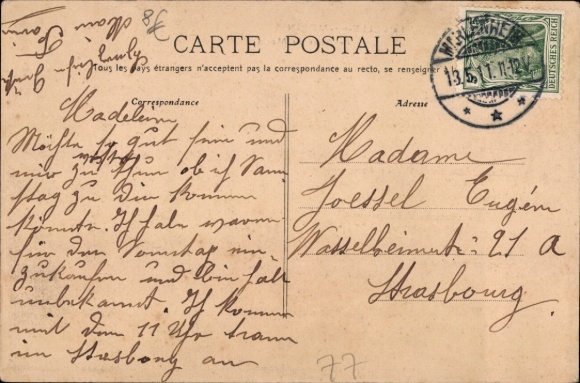 CARTE POSTALE
Tous les pays étrangers n'acceptent pas la correspondance au recto, se renseigner
Correspondance
Adresse
DEUTSCHES REICH
Madelein
Möchte so gut sein und
mir zu ob ich Sam
stag zu Die kommen
könnte. Ich habe waren
für den Samstag ein
zukaufen und bin halt
unbekannt. Ich komm
mit dem 11 Uhr tram
in Strasbourg an
Madame
Joessel Eugén
Wasselheimerstr. 21 a
Strasbourg.
78
77